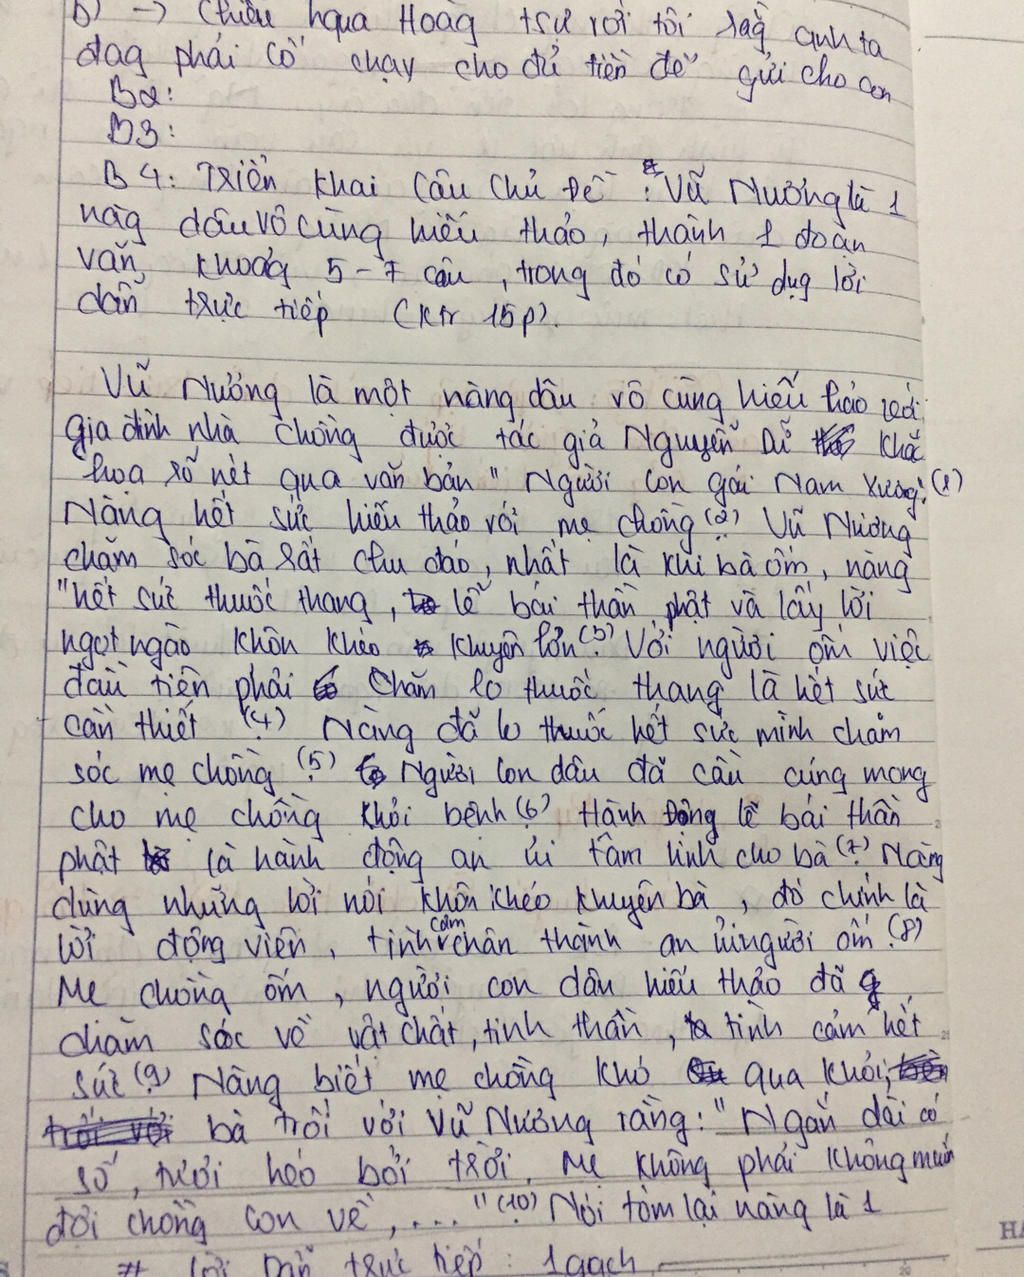 b) -> Chiều hqua Hoàg tsự với tôi rằg anh ta
đag phải cố chạy cho đủ tiền để gửi cho con
B2:
B3:
B4: Triển khai câu chủ đề: Vũ Nương là 1
nàg dâu vô cùng hiếu thảo, thành 1 đoạn
văn, khoảg 5-7 câu, trong đó có sử dụg lời
dẫn trực tiếp (Ktr 15p).
Vũ Nương là một nàng dâu vô cùng hiếu thảo với
gia đình nhà chồng được tác giả Nguyễn Dữ khắc
họa rõ nét qua văn bản "Người con gái Nam Xương". (1)
Nàng hết sức hiếu thảo với mẹ chồng (2). Vũ Nương
chăm sóc bà rất chu đáo, nhất là khi bà ốm, nàng
"hết sức thuốc thang, lễ bái thần phật và lấy lời
ngọt ngào khôn khéo khuyên lơn (3). Với người ốm việc
đầu tiên phải chăm lo thuốc thang là hết sức
cần thiết (4). Nàng đã lo thuốc hết sức mình chăm
sóc mẹ chồng (5). Người con dâu đã cầu cúng mong
cho mẹ chồng khỏi bệnh (6). Hành động lễ bái thần
phật là hành động an ủi tâm linh cho bà (7). Nàng
dùng những lời nói khôn khéo khuyên bà, đó chính là
lời động viên, tình cảm chân thành an ủi người ốm. (8)
Mẹ chồng ốm, người con dâu hiếu thảo đã
chăm sóc về vật chất, tinh thần, tình cảm hết
sức (9). Nàng biết mẹ chồng khó qua khỏi,
bà trối với Vũ Nương rằng: "Ngắn dài có
số, tươi héo bởi trời. Mẹ không phải không muốn
đợi chồng con về, ..." (10). Nói tóm lại nàng là 1
# Lời dẫn trực tiếp: 1 gạch